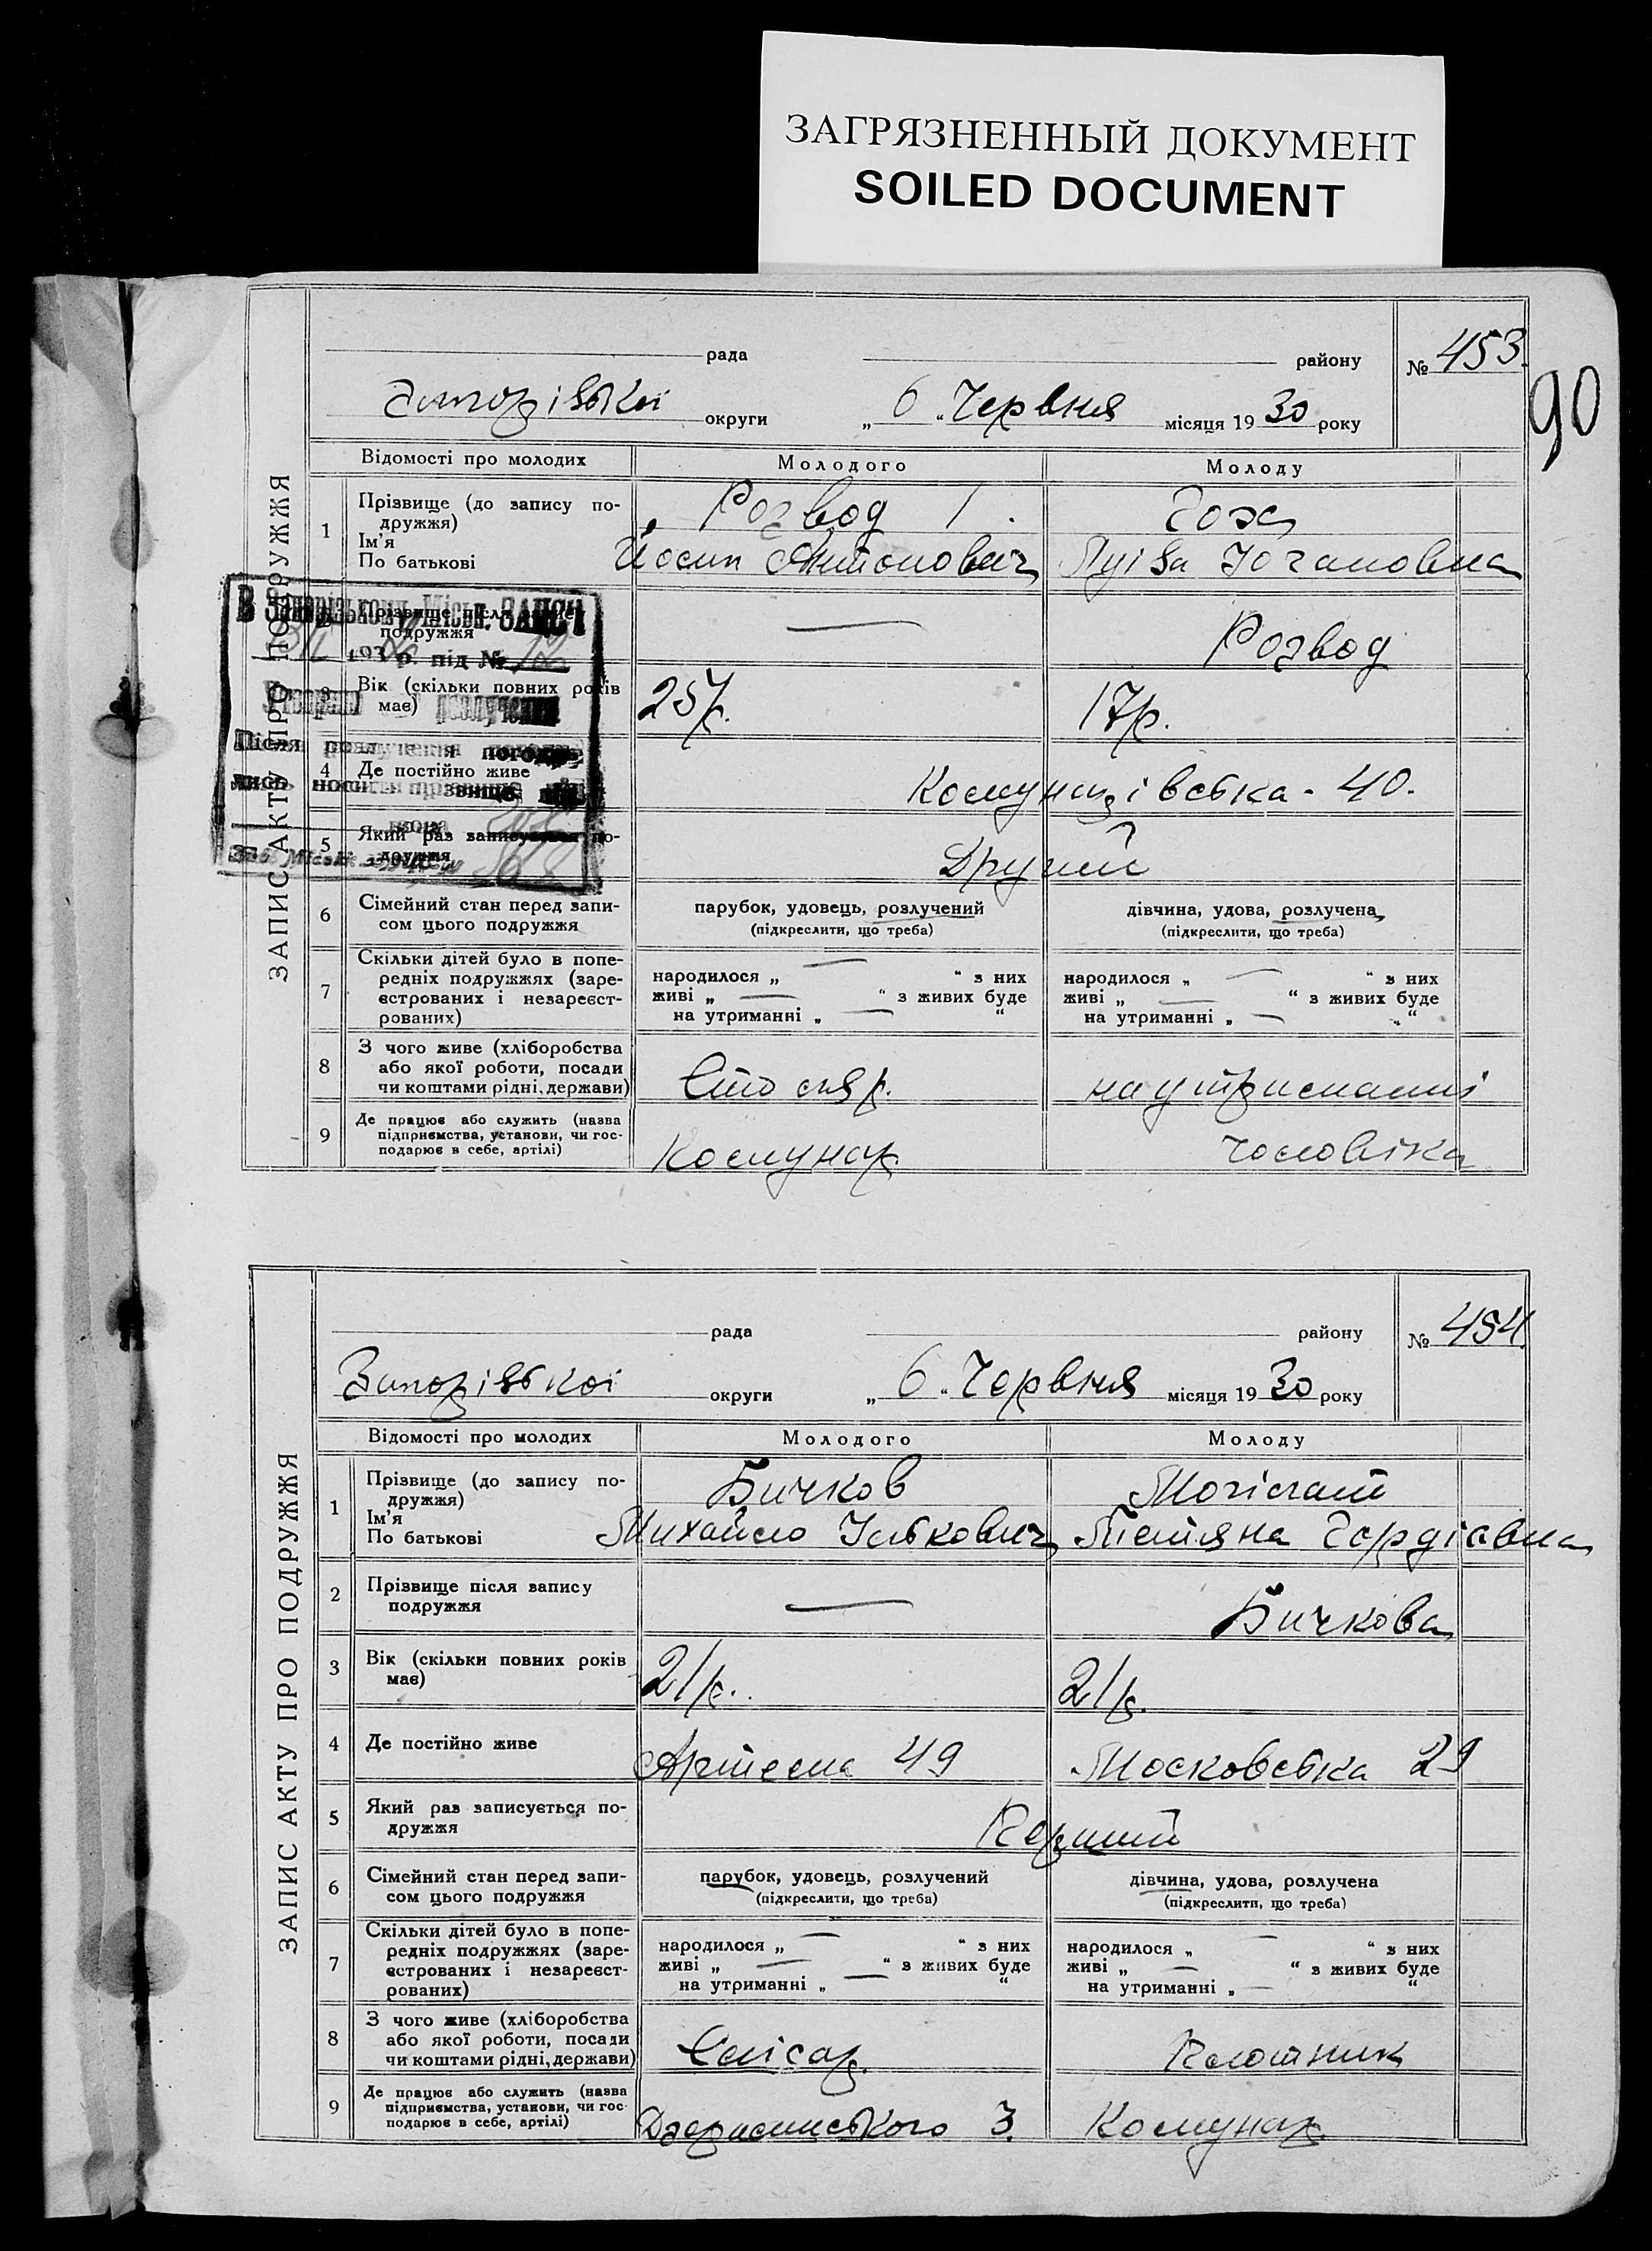 ЗАГРЯЗНЕННЫЙ ДОКУМЕНТ
SOILED DOCUMENT
90
ЗАПИС АКТУ ПРО ПОДРУЖЖЯ
рада району № 453.
Запорізької округи „ 6 “ Червня місяця 19 30 року
Відомості про молодих Молодого Молоду
1 Прізвище (до запису подружжя)
Ім’я
По батькові
Розвод
Йосип Антонович Луїза Югановна
Прізвище після запису подружжя — Розвод
В Запорізькому Міськ. ЗАГСІ
193 р. під №
Після розлучення
3 Вік (скільки повних років має) 25 р. 17 р.
4 Де постійно живе Комунарівська - 40.
5 Який раз записується подружжя Другий
6 Сімейний стан перед записом цього подружжя
парубок, удовець, розлучений дівчина, удова, розлучена
(підкреслити, що треба) (підкреслити, що треба)
7 Скільки дітей було в попередніх подружжях (зареєстрованих і незареєстрованих)
народилося „ — “ з них народилося „ — “ з них
живі „ — “ з живих буде живі „ — “ з живих буде
на утриманні „ — “ на утриманні „ — “
8 З чого живе (хліборобства
або якої роботи, посади
чи коштами рідні, держави)
Столяр. на утриманні
9 Де працює або служить (назва
підприємства, установи, чи господарює в себе, артілі)
Комунар. чоловіка
ЗАПИС АКТУ ПРО ПОДРУЖЖЯ
рада району № 454.
Запорізької округи „ 6 “ Червня місяця 19 30 року
Відомості про молодих Молодого Молоду
1 Прізвище (до запису подружжя)
Ім’я
По батькові
Бичков
Михайло Ількович Тетяна Гордіївна
2 Прізвище після запису подружжя — Бичкова
3 Вік (скільки повних років має) 21 р. 21 р.
4 Де постійно живе Артема 49 Московська 29
5 Який раз записується подружжя Перший
6 Сімейний стан перед записом цього подружжя
парубок, удовець, розлучений дівчина, удова, розлучена
(підкреслити, що треба) (підкреслити, що треба)
7 Скільки дітей було в попередніх подружжях (зареєстрованих і незареєстрованих)
народилося „ — “ з них народилося „ — “ з них
живі „ — “ з живих буде живі „ — “ з живих буде
на утриманні „ — “ на утриманні „ — “
8 З чого живе (хліборобства
або якої роботи, посади
чи коштами рідні, держави)
Слісар. Плотник
9 Де працює або служить (назва
підприємства, установи, чи господарює в себе, артілі)
Дзержинського 3. Комунар.